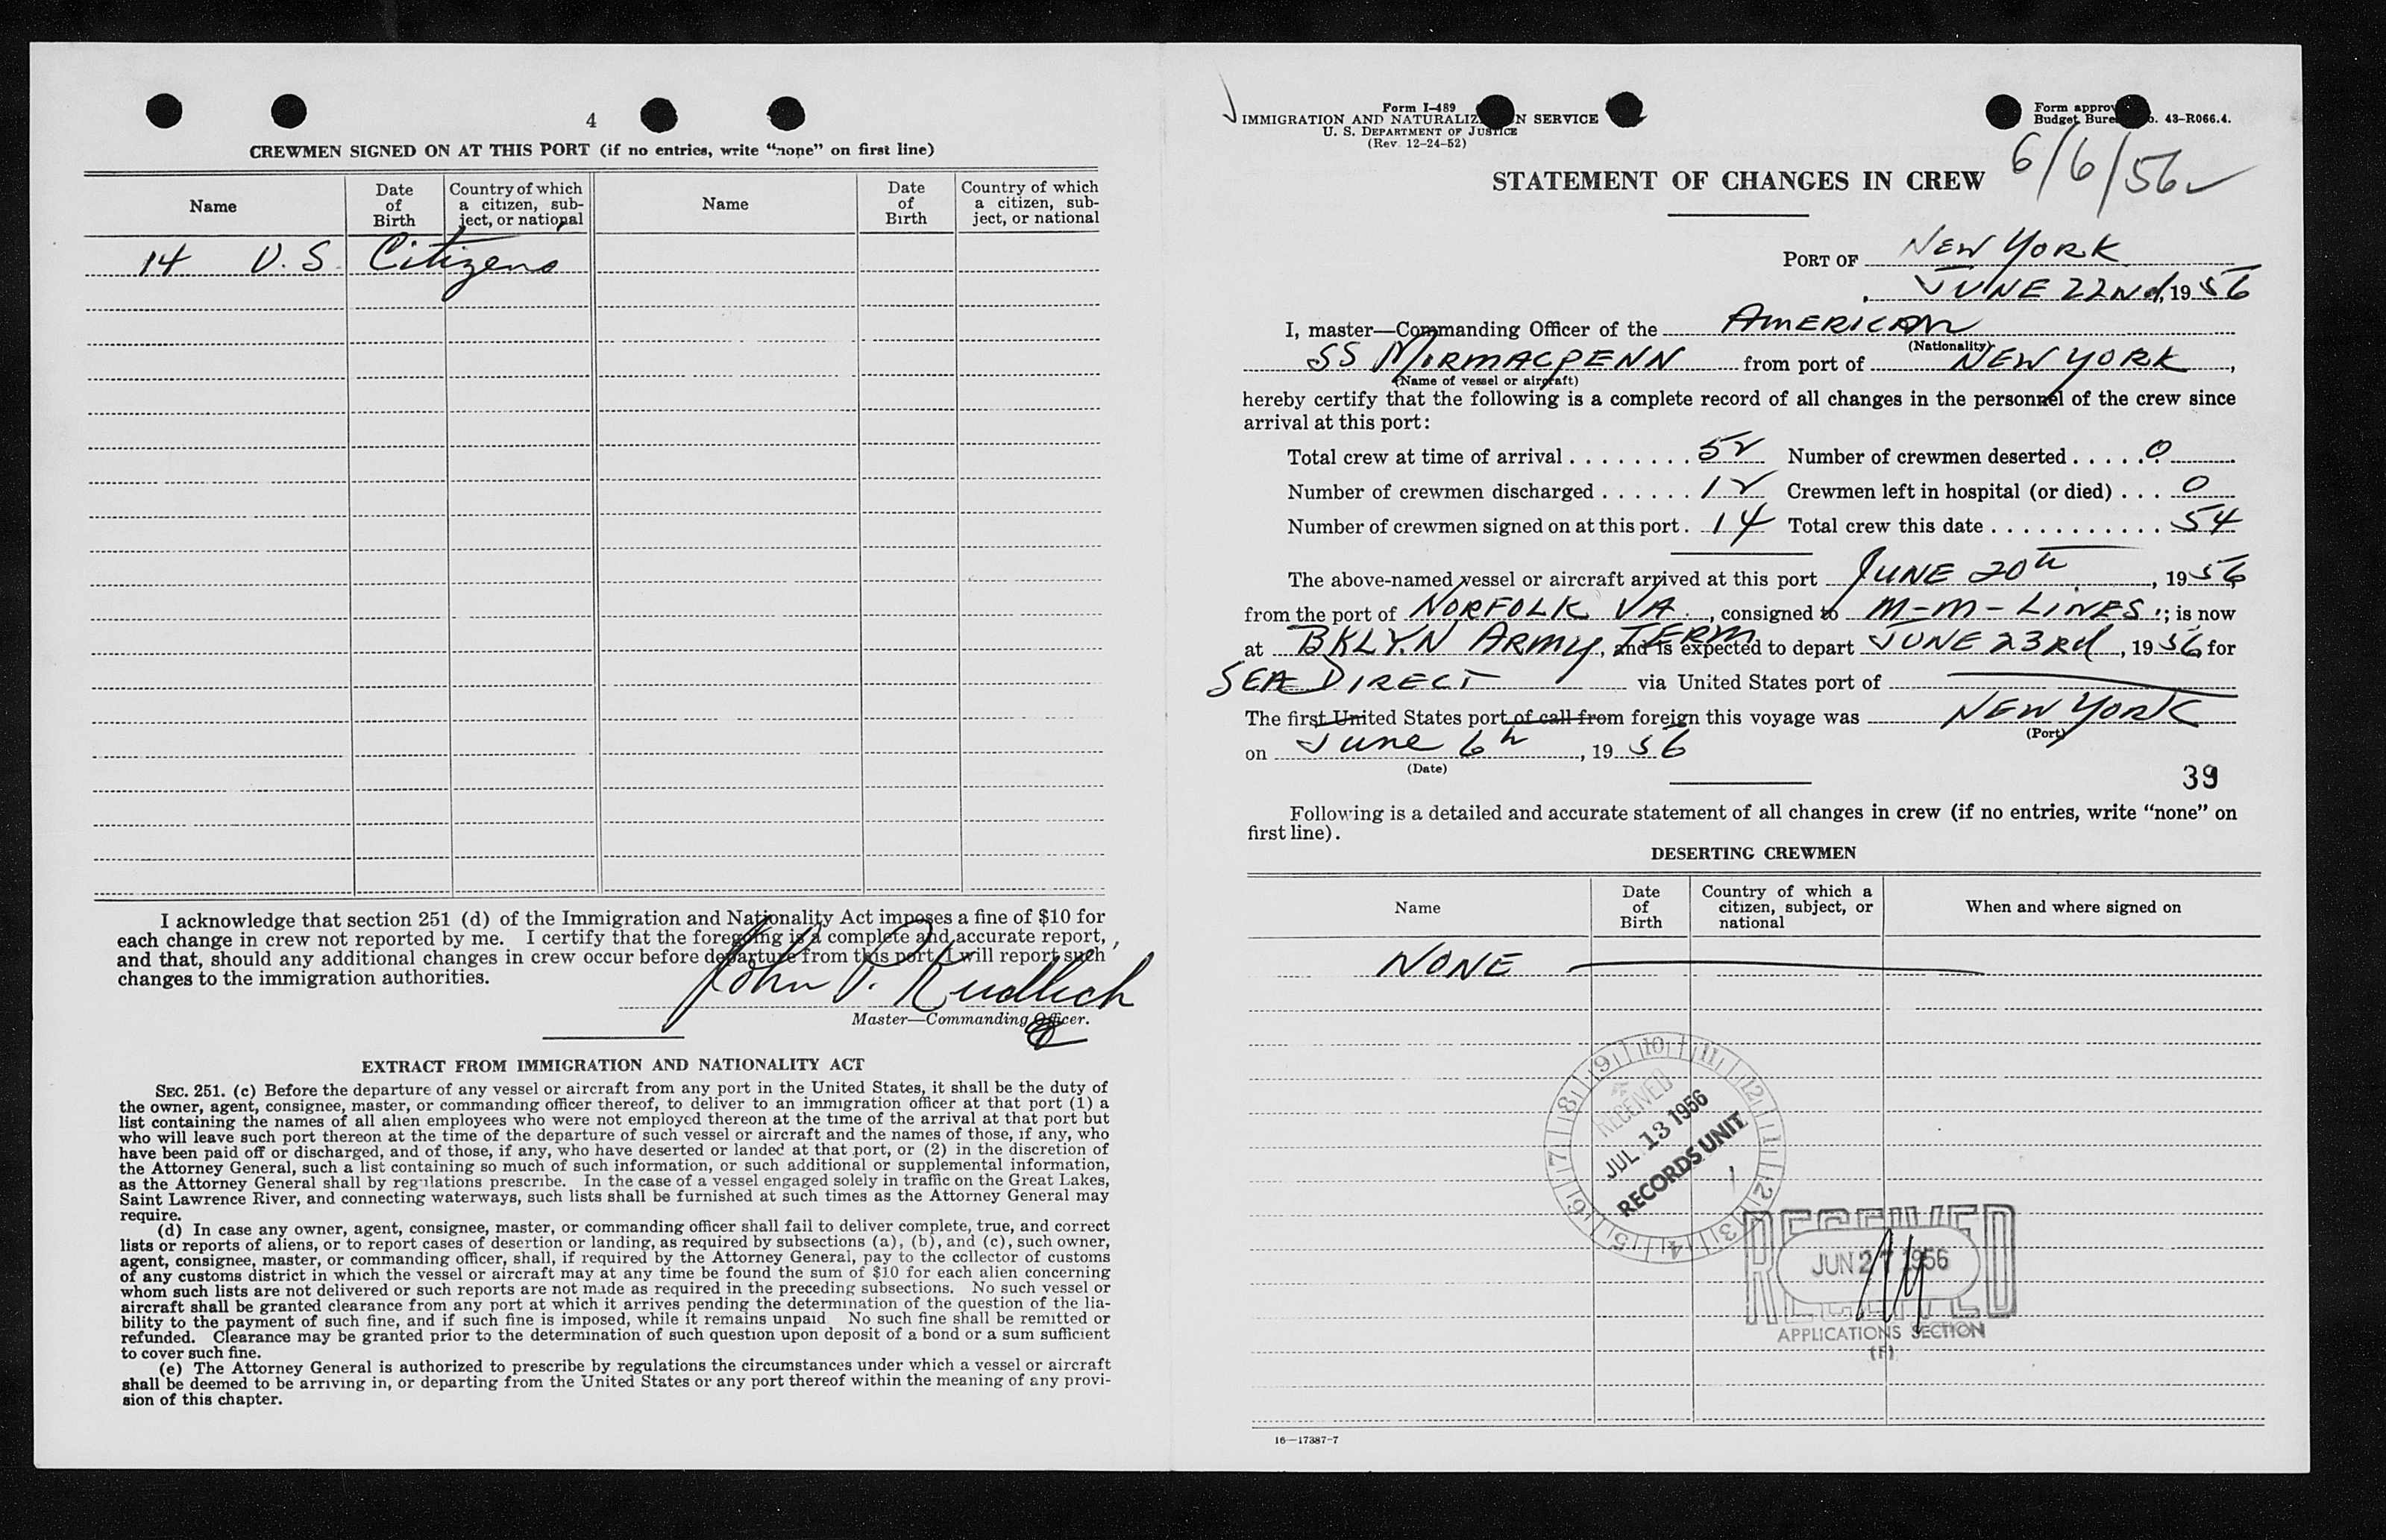 4
CREWMEN SIGNED ON AT THIS PORT (if no entries, write “none” on first line)
Name
Date of Birth
Country of which a citizen, subject, or national
Name
Date of Birth
Country of which a citizen, subject, or national
14 U.S. Citizens
I acknowledge that section 251 (d) of the Immigration and Nationality Act imposes a fine of $10 for
each change in crew not reported by me. I certify that the foregoing is a complete and accurate report,
and that, should any additional changes in crew occur before departure from this port, I will report such
changes to the immigration authorities.
John P. Rudlich
Master—Commanding Officer.
EXTRACT FROM IMMIGRATION AND NATIONALITY ACT
SEC. 251. (c) Before the departure of any vessel or aircraft from any port in the United States, it shall be the duty of
the owner, agent, consignee, master, or commanding officer thereof, to deliver to an immigration officer at that port (1) a
list containing the names of all alien employees who were not employed thereon at the time of the arrival at that port but
who will leave such port thereon at the time of the departure of such vessel or aircraft and the names of those, if any, who
have been paid off or discharged, and of those, if any, who have deserted or landed at that port, or (2) in the discretion of
the Attorney General, such a list containing so much of such information, or such additional or supplemental information,
as the Attorney General shall by regulations prescribe. In the case of a vessel engaged solely in traffic on the Great Lakes,
Saint Lawrence River, and connecting waterways, such lists shall be furnished at such times as the Attorney General may
require.
(d) In case any owner, agent, consignee, master, or commanding officer shall fail to deliver complete, true, and correct
lists or reports of aliens, or to report cases of desertion or landing, as required by subsections (a), (b), and (c), such owner,
agent, consignee, master, or commanding officer, shall, if required by the Attorney General, pay to the collector of customs
of any customs district in which the vessel or aircraft may at any time be found the sum of $10 for each alien concerning
whom such lists are not delivered or such reports are not made as required in the preceding subsections. No such vessel or
aircraft shall be granted clearance from any port at which it arrives pending the determination of the question of the lia-
bility to the payment of such fine, and if such fine is imposed, while it remains unpaid. No such fine shall be remitted or
refunded. Clearance may be granted prior to the determination of such question upon deposit of a bond or a sum sufficient
to cover such fine.
(e) The Attorney General is authorized to prescribe by regulations the circumstances under which a vessel or aircraft
shall be deemed to be arriving in, or departing from the United States or any port thereof within the meaning of any provi-
sion of this chapter.
Form I-489
IMMIGRATION AND NATURALIZ N SERVICE
U. S. DEPARTMENT OF JUSTICE
(Rev. 12-24-52)
Form approv
Budget Bure o. 43-R066.4.
6/6/56
STATEMENT OF CHANGES IN CREW
PORT OF NEW YORK
JUNE 22nd, 1956
I, master—Commanding Officer of the AMERICAN
(Nationality)
SS MORMACPENN from port of NEW YORK,
(Name of vessel or aircraft)
hereby certify that the following is a complete record of all changes in the personnel of the crew since
arrival at this port:
Total crew at time of arrival . . . . . . . . 52 Number of crewmen deserted . . . . . 0
Number of crewmen discharged . . . . . . 12 Crewmen left in hospital (or died) . . . 0
Number of crewmen signed on at this port . 14 Total crew this date . . . . . . . . . . . 54
The above-named vessel or aircraft arrived at this port JUNE 20th, 1956
from the port of NORFOLK VA., consigned to M-M-LINES; is now
at BKLYN ARMY TERM, and is expected to depart JUNE 23rd, 1956 for
SEA DIRECT via United States port of
The first United States port of call from foreign this voyage was NEW YORK
(Port)
on June 6th, 1956
(Date)
39
Following is a detailed and accurate statement of all changes in crew (if no entries, write “none” on
first line).
DESERTING CREWMEN
Name
Date of Birth
Country of which a citizen, subject, or national
When and where signed on
NONE
9 10 11 12 1 2 3 4 5 6 7 8
RECEIVED
JUL 13 1956
RECORDS UNIT
RECEIVED
JUN 27 1956
RECEIVED
APPLICATIONS SECTION
(F)
16—17387-7